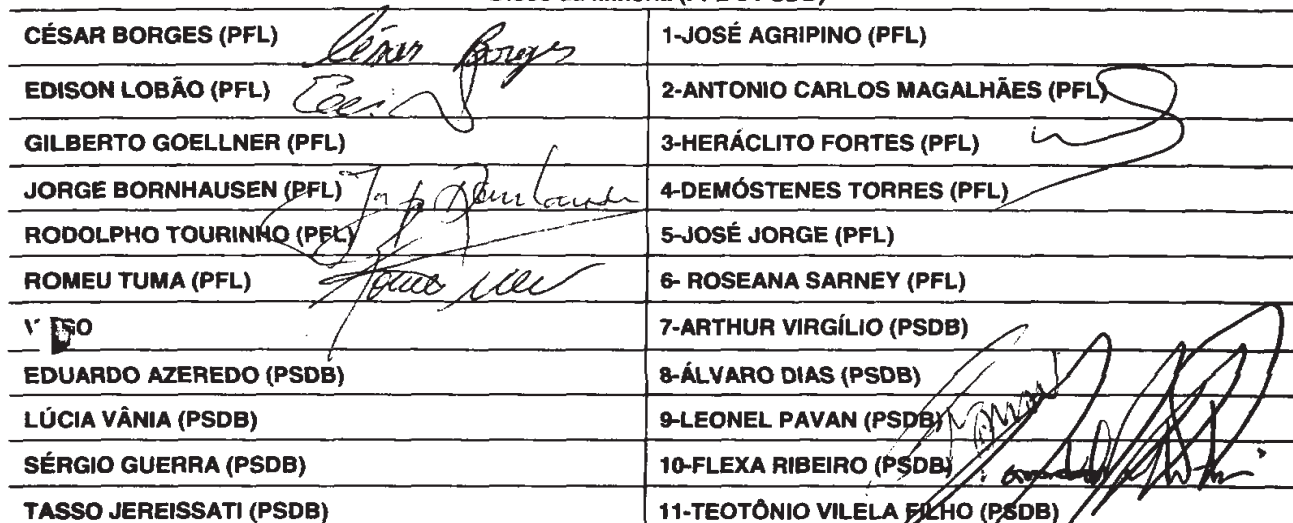 CÉSAR BORGES (PFL) César Borges 1-JOSÉ AGRIPINO (PFL)
EDISON LOBÃO (PFL) 2-ANTONIO CARLOS MAGALHÃES (PFL)
GILBERTO GOELLNER (PFL) 3-HERÁCLITO FORTES (PFL)
JORGE BORNHAUSEN (PFL) 4-DEMÓSTENES TORRES (PFL)
RODOLPHO TOURINHO (PFL) 5-JOSÉ JORGE (PFL)
ROMEU TUMA (PFL) 6- ROSEANA SARNEY (PFL)
7-ARTHUR VIRGÍLIO (PSDB)
EDUARDO AZEREDO (PSDB) 8-ÁLVARO DIAS (PSDB)
LÚCIA VÂNIA (PSDB) 9-LEONEL PAVAN (PSDB)
SÉRGIO GUERRA (PSDB) 10-FLEXA RIBEIRO (PSDB)
TASSO JEREISSATI (PSDB) 11-TEOTÔNIO VILELA FILHO (PSDB)